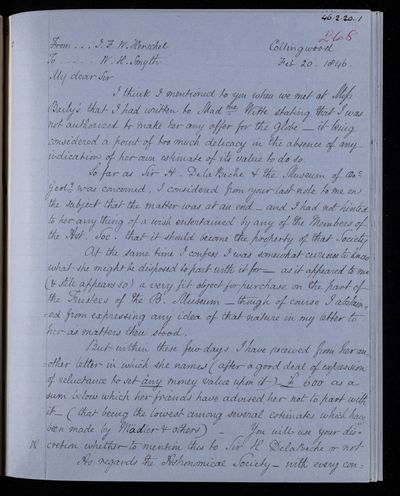 46.2.20.1
265
From ... J. F. W. Herschel
Collingwood
To ..... W. H. Smyth
Feb 20. 1846.
My dear Sir
I think I mentioned to you when we met at Miss
Baily's that I had written to Mad me Witte stating that I was
not authorized to make her any offer for the Globe — it being
considered a point of too much delicacy in the absence of any
indication of her own estimate of its value to do so.
So far as Sir H. De la Beche & the Museum of
Geol. was concerned, I considered from your last note to me on
the subject that the matter was at an end — and I had not hinted
to her any thing of a wish entertained by any of the Members of
the Ast. Soc. that it should become the property of that Society
At the same time I confess I was somewhat curious to know
what she might be disposed to part with it for — as it appeared to me
(& still appears so) a very fit object for purchase on the part of
the Trustees of the B. Museum — though of course I abstain-
-ed from expressing any idea of that nature in my letter to
her as matters then stood.
But within these few days I have received from her an-
-other letter in which she names (after a good deal of expression
of reluctance to set any money value upon it) £ 600 as a
sum below which her friends have advised her not to part with
it — (that being the lowest among several estimates which have
been made by Madler & others) — You will use your dis-
cretion whether to mention this to Sir H Delabeche or not
As regards the Astronomical Society — with every con-